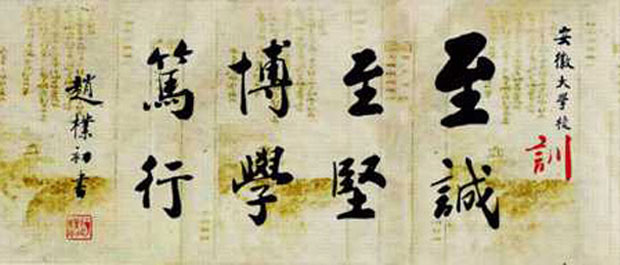 安徽大学校訓
至誠
至堅
博學
篤行
趙樸初書